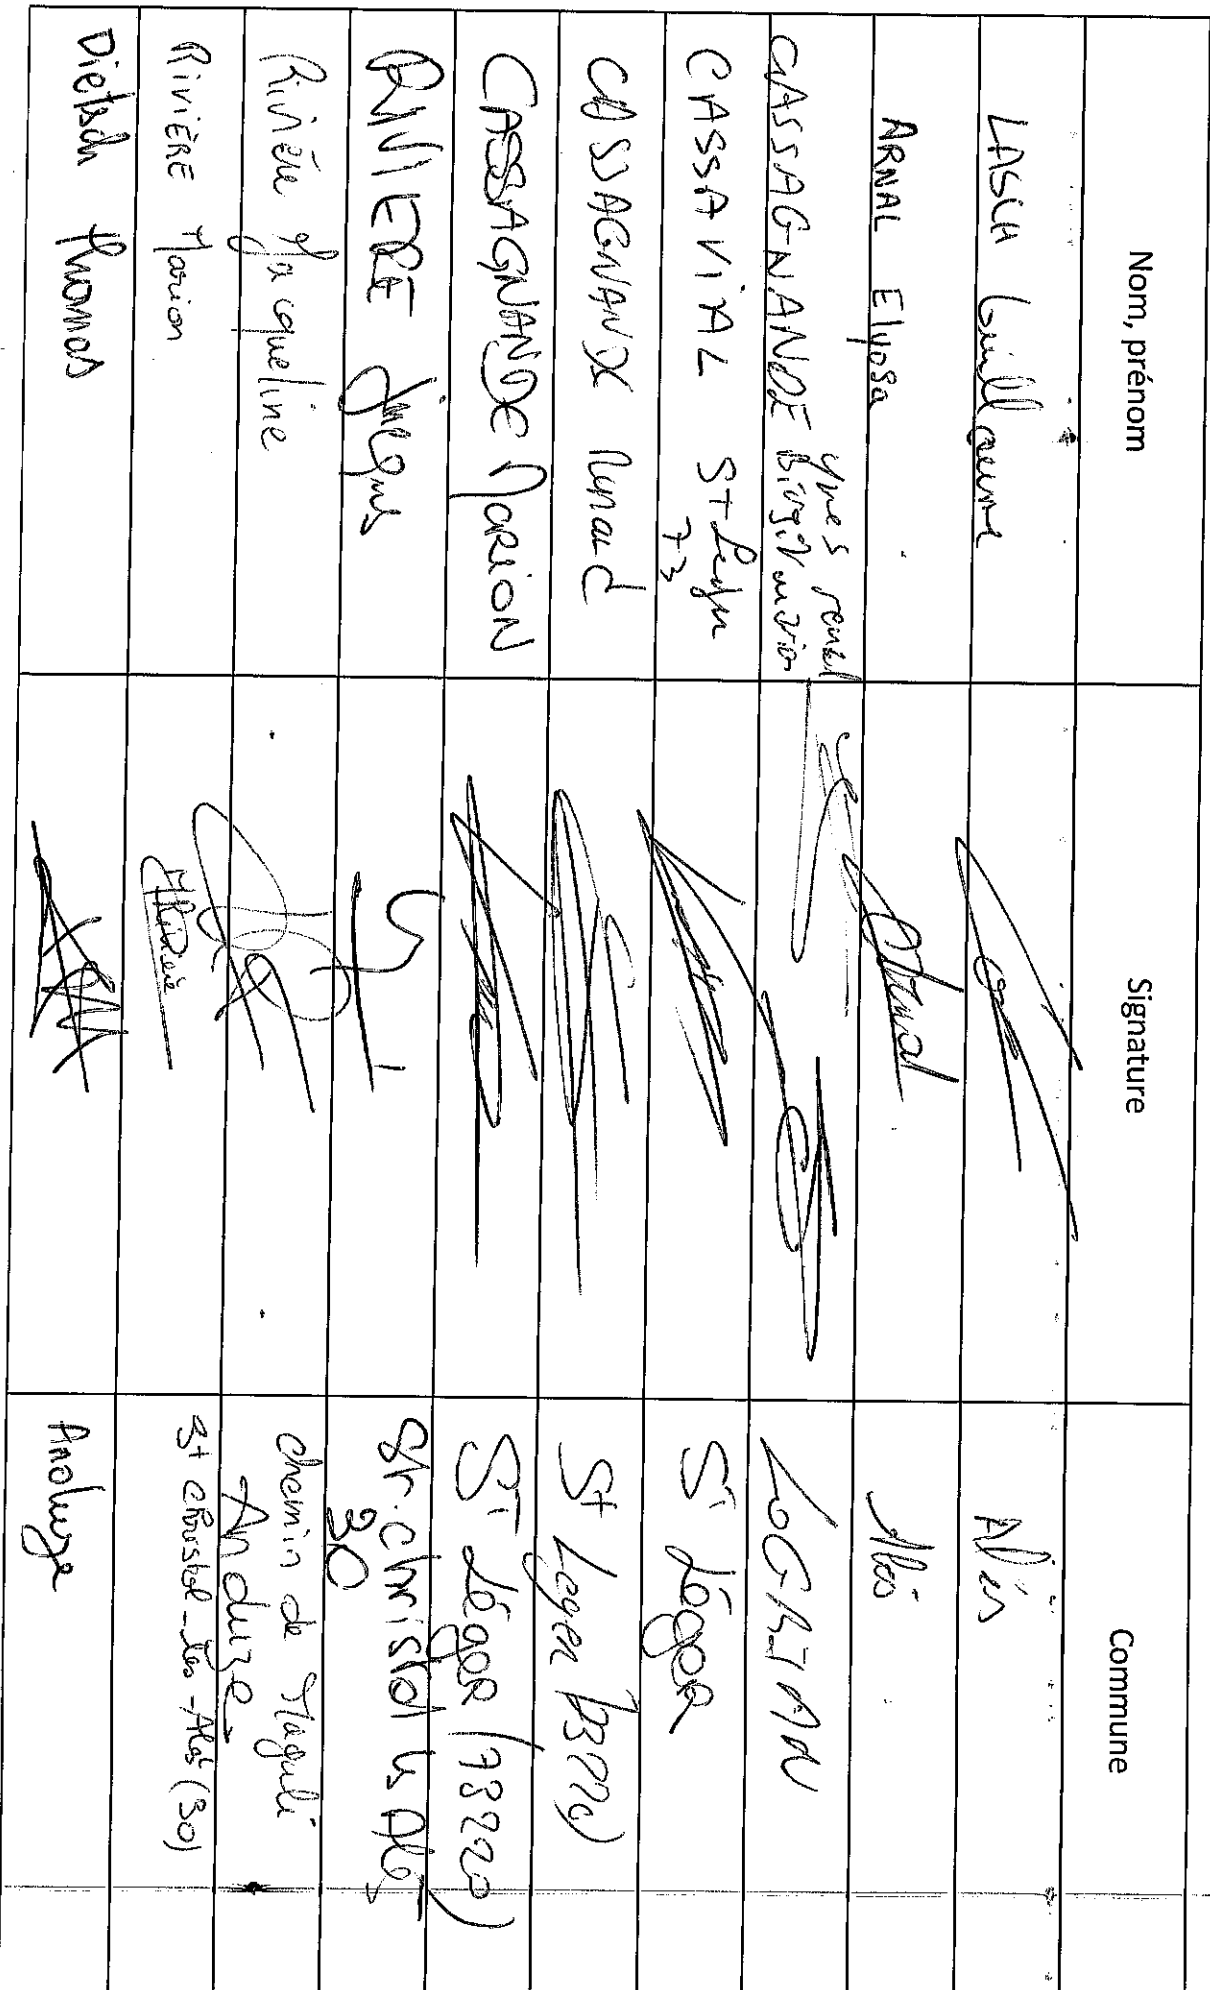 Nom, prénom Signature Commune
LASCH Guillaume Alès
ARNAL Elyosa Arnal Alès
CASSAGNANDE Yves renal
LOGRIAN
CASSAVIAL St Léger
73
St Léger
CASSAGNANDE Renaud St Léger (73220)
CASSAGNANDE Marion St Léger (73220)
RIVIERE Jacques St. Christol les Alès
30
Rivière Jacqueline chemin de Maguli
Anduze
RIVIÈRE Marion St Christol-lès-Alès (30)
Dietsch Thomas Anduze